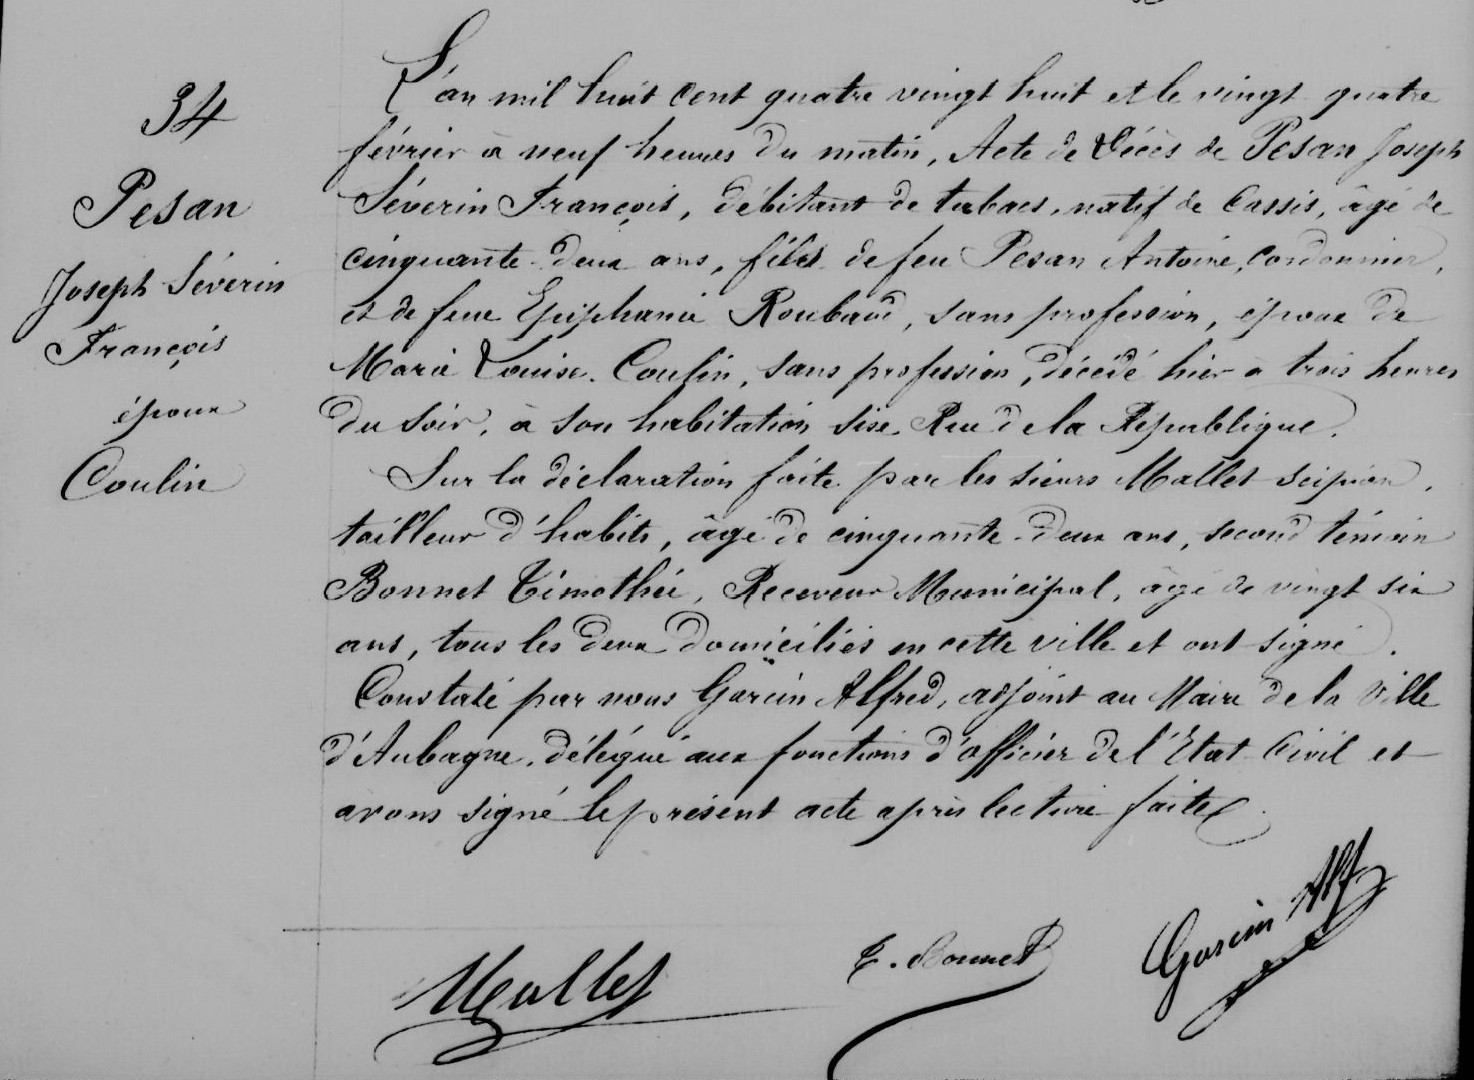 34
Pesan
Joseph Séverin
François
époux
Coulin
L'an mil huit cent quatre vingt huit et le vingt quatre
février à neuf heures du matin, Acte de Décès de Pesan Joseph
Séverin François, débitant de tabacs, natif de Cassis, âgé de
cinquante-deux ans, fils de feu Pesan Antoine, cordonnier,
et de feue Epiphanie Roubaud, sans profession, époux de
Marie Louise Coulin, sans profession, décédé hier à trois heures
du soir, à son habitation sise Rue de la République.
Sur la déclaration faite par les sieurs Mallet Scipion,
tailleur d'habits, âgé de cinquante-deux ans, second témoin
Bonnet Timothée, Receveur Municipal, âgé de vingt six
ans, tous les deux domiciliés en cette ville et ont signé.
Constaté par nous Garcin Alfred, adjoint au Maire de la Ville
d'Aubagne, délégué aux fonctions d'officier de l'Etat Civil et
avons signé le présent acte après lecture faite.
Mallet
T. Bonnet
Garcin Alf